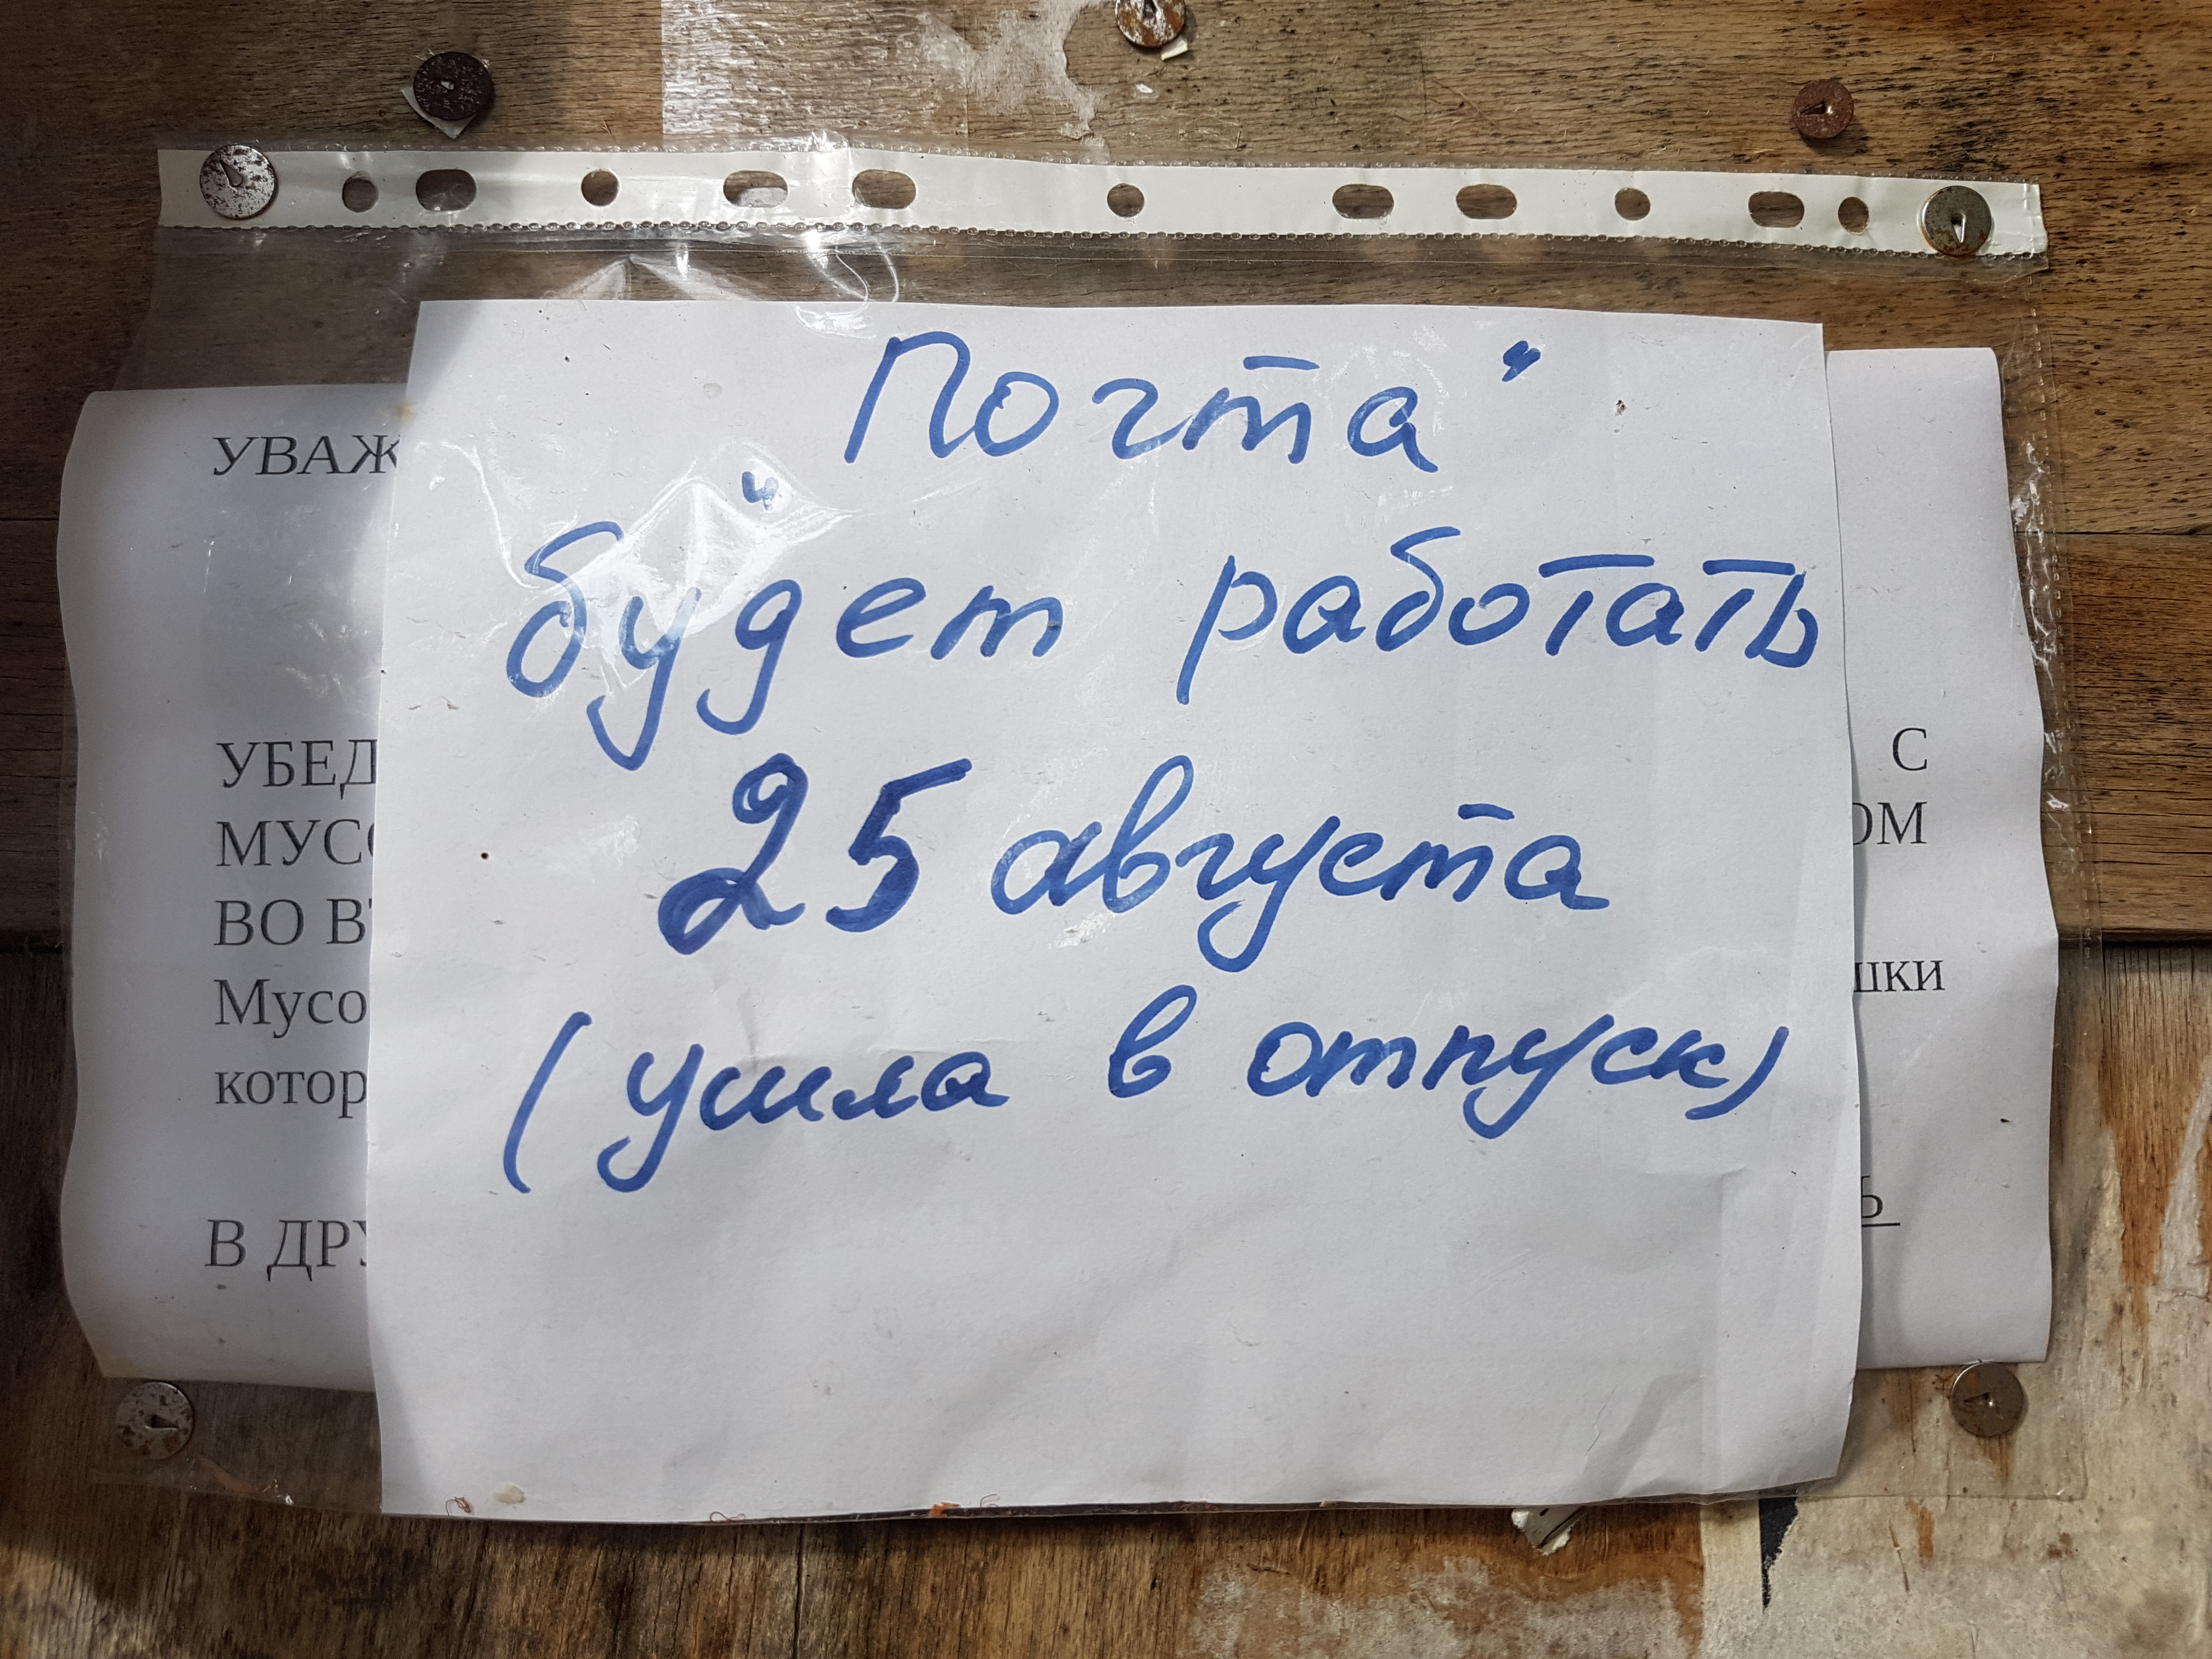 „Почта“
будет работать
25 августа
(ушла в отпуск)
УВАЖ
УБЕД
С
МУСО
ОМ
ВО ВТ
Мусо
шки
котор
Ь
В ДРУ